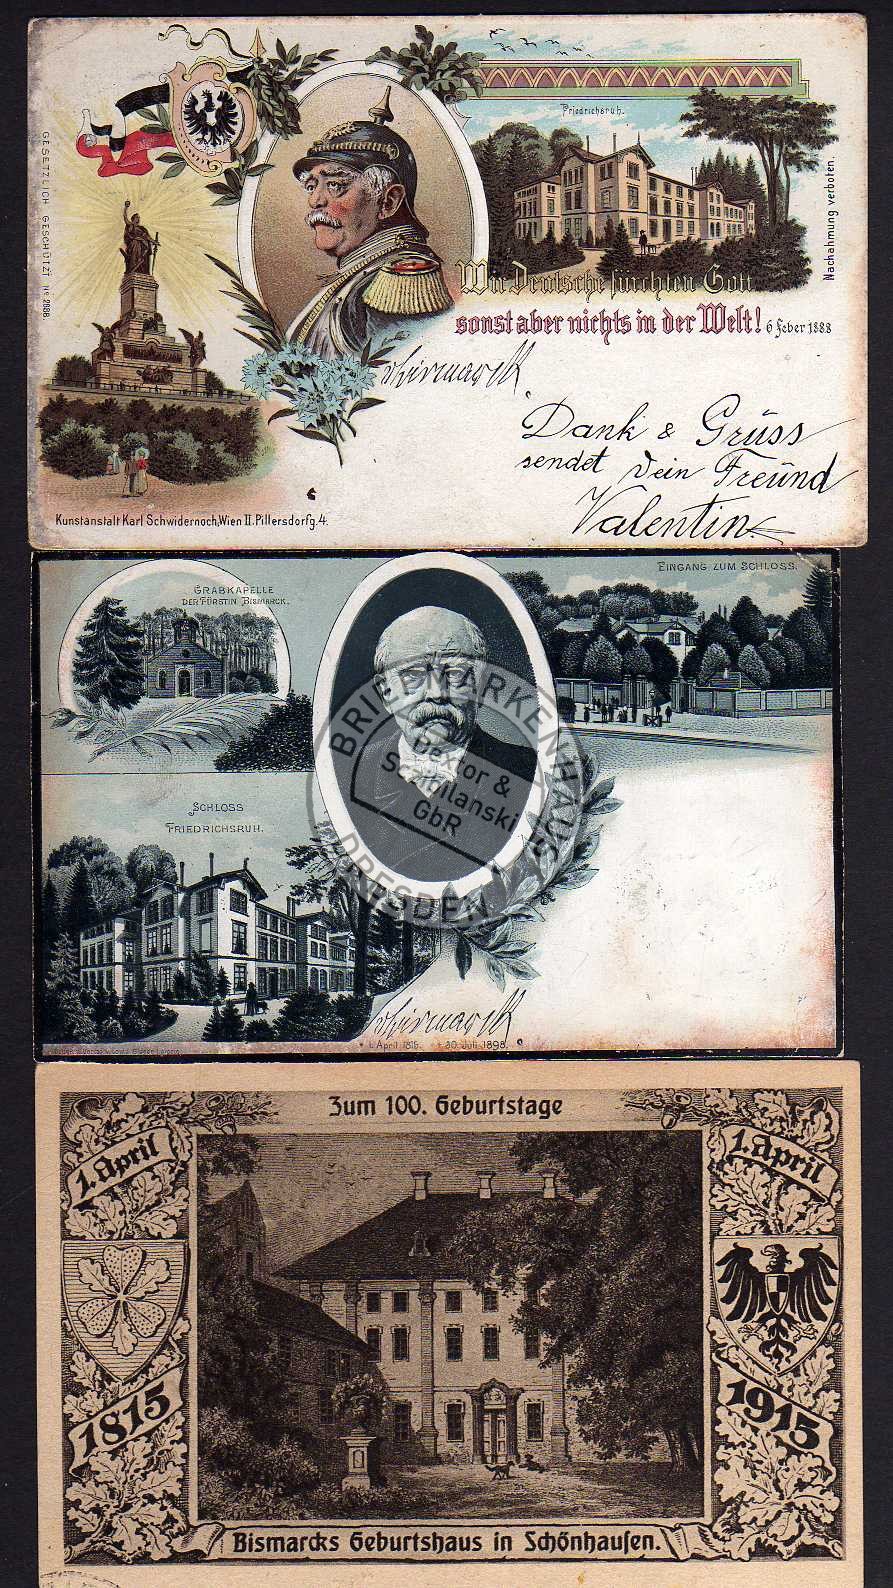 GESETZLICH GESCHÜTZT No 2988.
Friedrichsruh.
Nachahmung verboten.
Wir Deutsche fürchten Gott
sonst aber nichts in der Welt! 6 Feber 1888
v Bismarck
Dank & Grüss
sendet Dein Freünd
Valentin
Kunstanstalt Karl Schwidernoch, Wien II. Pillersdorfg. 4.
GRABKAPELLE
DER FÜRSTIN BISMARCK.
EINGANG ZUM SCHLOSS.
BRIEFMARKENHAUS
Bextor &
GbR
DRESDEN
SCHLOSS
FRIEDRICHSRUH.
v Bismarck
* 1. April 1815. † 30. Juli 1898.
Zum 100. Geburtstage
1. April
1. April
1815
1915
Bismarcks Geburtshaus in Schönhausen.